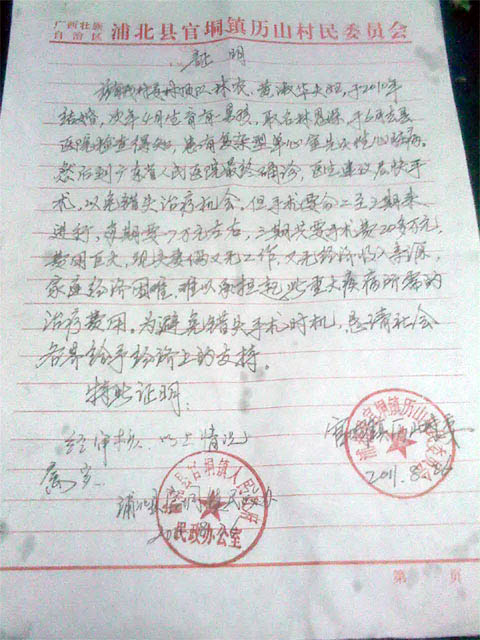 广西壮族
自治区 浦北县官垌镇历山村民委员会
证明
兹有我村 林 黄淑华夫妇,于2010年
结婚,次年4月生育有一男孩,取名林恩 ,于6月去县
医院检查得知,患有复杂型单心室先天性心脏病。
然后到广东省人民医院最终确诊,医生建议尽快手
术,以免错失治疗机会,但手术要分二至三期来
进行,每期要7万元左右,三期共要手术款20多万元,
费用巨大,现夫妻俩又无工作,又无经济收入来源,
家庭经济困难,难以承担起此重大疾病所需的
治疗费用。为避免错失手术时机,恳请社会
各界给予经济上的支持。
特此证明!
官垌镇历山村委
2011.8.
经审核,以上情况
属实。
浦北县官垌镇民政办
浦北县官垌镇历山村民委员会
浦北县官垌镇人民政府
民政办公室
第 页